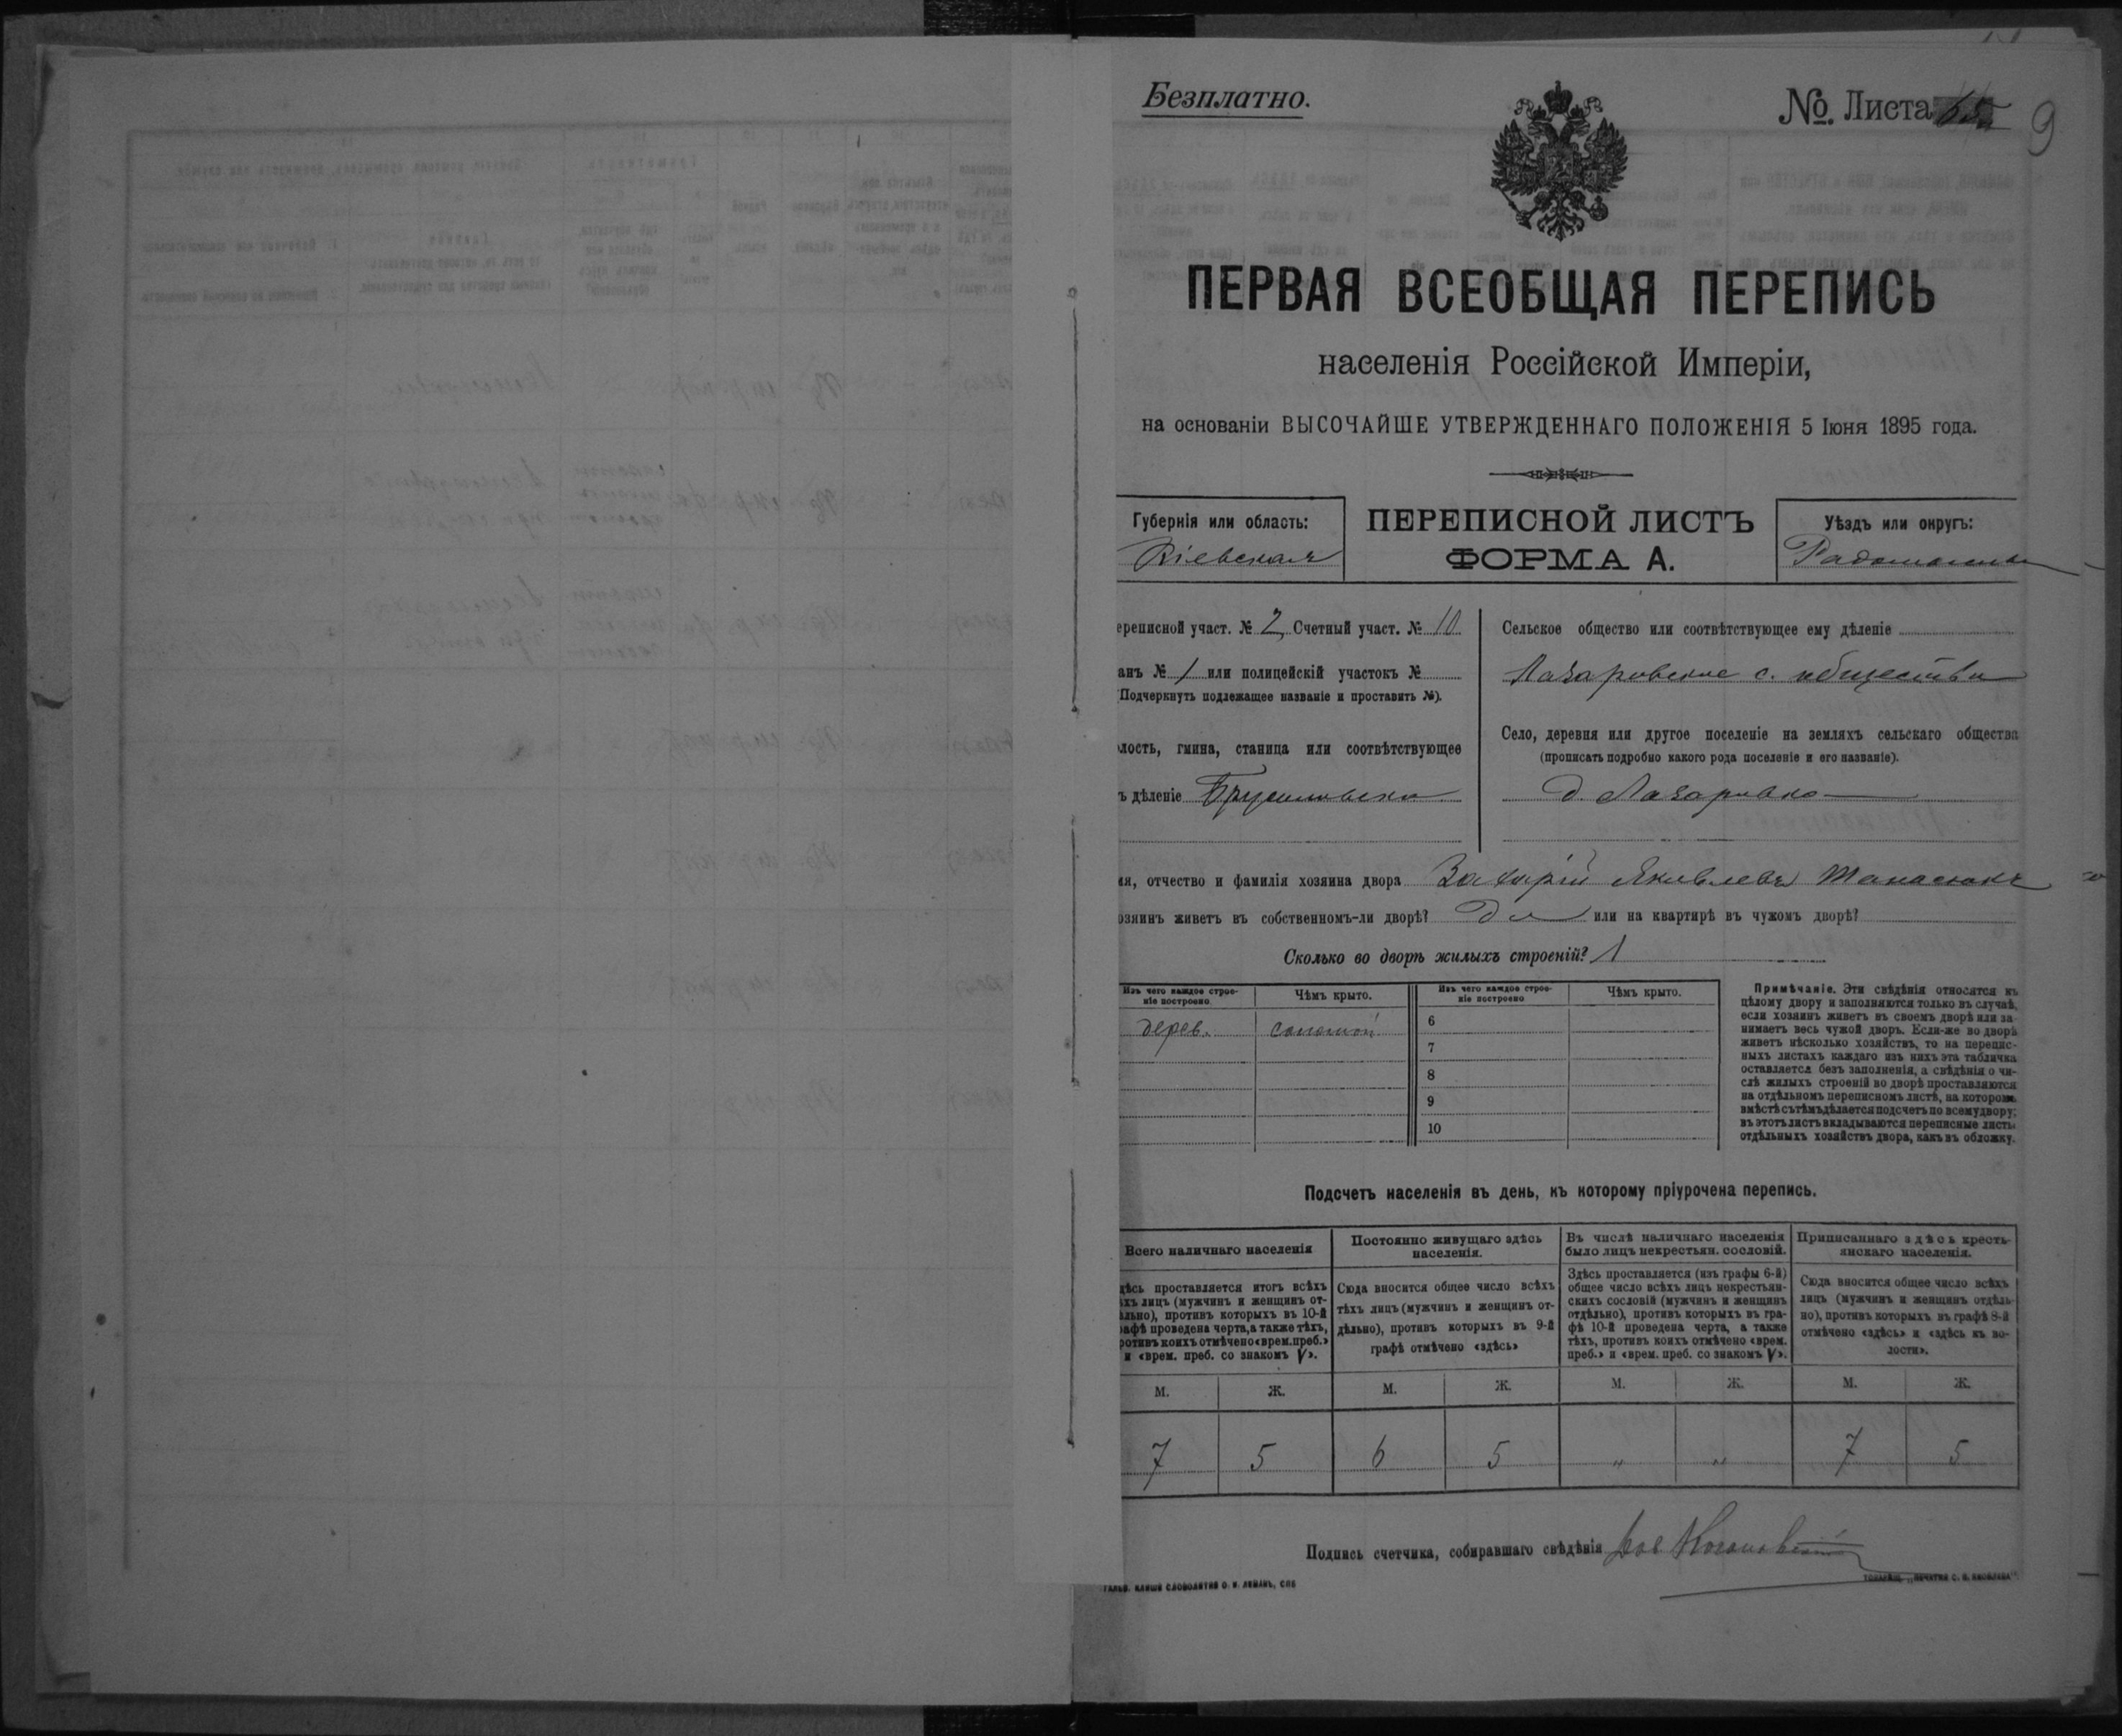 Безплатно.
№. Листа 9
ПЕРВАЯ ВСЕОБЩАЯ ПЕРЕПИСЬ
населенія Россійской Имперіи,
на основаніи ВЫСОЧАЙШЕ УТВЕРЖДЕННАГО ПОЛОЖЕНІЯ 5 Іюня 1895 года.
Губернія или область:
Кіевская
ПЕРЕПИСНОЙ ЛИСТЪ
ФОРМА А.
Уѣздъ или округъ:
ереписной участ. № 2 Счетный участ. № 10
анъ № 1 или полицейскій участокъ №
(Подчеркнуть подлежащее названіе и проставить №).
лость, гмина, станица или соотвѣтствующее
ъ дѣленіе Брусиловская
Сельское общество или соотвѣтствующее ему дѣленіе
Лазаровское с. общество
Село, деревня или другое поселеніе на земляхъ сельскаго общества
(прописать подробно какого рода поселеніе и его названіе).
д. Лазаровка
ія, отчество и фамилія хозяина двора Захарій Яковлевъ Танасюкъ
озяинъ живетъ въ собственномъ-ли дворѣ? Да или на квартирѣ въ чужомъ дворѣ?
Сколько во дворѣ жилыхъ строеній? 1
Изъ чего каждое строе-
ніе построено.
Чѣмъ крыто.
Изъ чего каждое строе-
ніе построено
Чѣмъ крыто.
дерев. соломой
6
7
8
9
10
Примѣчаніе. Эти свѣдѣнія относятся къ
цѣлому двору и заполняются только въ случаѣ,
если хозяинъ живетъ въ своемъ дворѣ или за-
нимаетъ весь чужой дворъ. Если-же во дворѣ
живетъ нѣсколько хозяйствъ, то на перепис-
ныхъ листахъ каждаго изъ нихъ эта табличка
оставляется безъ заполненія, а свѣдѣнія о чи-
слѣ жилыхъ строеній во дворѣ проставляются
на отдѣльномъ переписномъ листѣ, на которомъ
вмѣстѣ съ тѣмъ дѣлается подсчетъ по всему двору;
въ этотъ листъ вкладываются переписные листы
отдѣльныхъ хозяйствъ двора, какъ въ обложку.
Подсчетъ населенія въ день, къ которому пріурочена перепись.
Всего наличнаго населенія
дѣсь проставляется итогъ всѣхъ
ѣхъ лицъ (мужчинъ и женщинъ от-
ѣльно), противъ которыхъ въ 10-й
рафѣ проведена черта, а также тѣхъ,
ротивъ коихъ отмѣчено «врем. преб.»
и «врем. преб. со знакомъ V».
Постоянно живущаго здѣсь
населенія.
Сюда вносится общее число всѣхъ
тѣхъ лицъ (мужчинъ и женщинъ от-
дѣльно), противъ которыхъ въ 9-й
графѣ отмѣчено «здѣсь»
Въ числѣ наличнаго населенія
было лицъ некрестьян. сословій.
Здѣсь проставляется (изъ графы 6-й)
общее число всѣхъ лицъ некрестьян-
скихъ сословій (мужчинъ и женщинъ
отдѣльно), противъ которыхъ въ гра-
фѣ 10-й проведена черта, а также
тѣхъ, противъ коихъ отмѣчено «врем.
преб.» и «врем. преб. со знакомъ V».
Приписаннаго здѣсь кресть-
янскаго населенія.
Сюда вносится общее число всѣхъ
лицъ (мужчинъ и женщинъ отдѣль-
но), противъ которыхъ въ графѣ 8-й
отмѣчено «здѣсь» и «здѣсь въ во-
лости».
М. Ж. М. Ж. М. Ж. М. Ж.
7 5 6 5 „ „ 7 5
Подпись счетчика, собиравшаго свѣдѣнія
ГАЛЬВ. КЛИШЕ СЛОВОЛИТНЯ О. И. ЛЕМАНЪ, СПБ